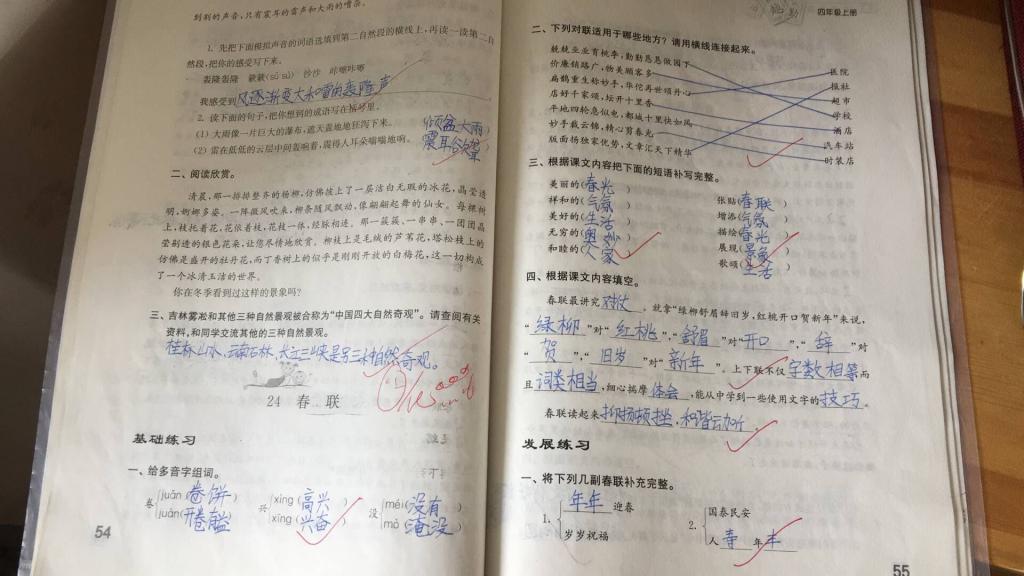 到别的声音,只有震耳的雷声和大雨的嘈杂。
1. 先把下面模拟声音的词语选填到第二自然段的横线上,再读一读第二自
然段,把你的感受写下来。
轰隆轰隆 簌簌(sù sù) 沙沙 咔嚓咔嚓
我感受到风逐渐变大和雷的轰隆声
2. 读下面的句子,把你想到的成语写在横线里。
(1) 大雨像一片巨大的瀑布,遮天盖地地狂泻下来。
(倾盆大雨)
(2) 雷在低低的云层中间轰响着,震得人耳朵嗡嗡地响。
震耳欲聋
二、阅读欣赏。
清晨,那一排排整齐的杨柳,仿佛披上了一层洁白无瑕的冰花,晶莹透
明,婀娜多姿。一阵微风吹来,柳条随风飘动,像翩翩起舞的仙女。每棵树
上,枝托着花,花依着枝,花枝一体,经脉相连。那一簇簇、一串串、一团团晶
莹剔透的银色花朵,让您尽情地欣赏。柳枝上是毛绒的芦苇花,塔松枝上的
仿佛是盛开的牡丹花,而丁香树上的似乎是刚刚开放的白梅花,这一切构成
了一个冰清玉洁的世界。
你在冬季看到过这样的景象吗?
三、吉林雾凇和其他三种自然景观被合称为“中国四大自然奇观”。请查阅有关
资料,和同学交流其他的三种自然景观。
桂林山水,云南石林,长江三峡是另三种自然奇观。
24 春 联
基础练习
一、给多音字组词。
卷 juǎn(卷饼) juàn(开卷有益)
兴 xìng(高兴) xīng(兴奋)
没 méi(没有) mò(淹没)
54
四年级上册
二、下列对联适用于哪些地方?请用横线连接起来。
兢兢业业育桃李,勤勤恳恳做园丁
价廉销路广,物美顾客多
扁鹊重生称妙手,华佗再世颂丹心
店好千家颂,坛开十里香
平地四轮急似也,都城十里快如风
妙手裁云锦,精心剪春光
版面扬独家优势,文章汇天下精华
医院
报社
超市
学校
酒店
汽车站
时装店
三、根据课文内容把下面的短语补写完整。
美丽的(春光)
祥和的(气氛)
美好的(生活)
无穷的(奥妙)
和睦的(人家)
张贴(春联)
增添(气氛)
描绘(春光)
展现(景象)
歌颂(生活)
四、根据课文内容填空。
春联最讲究对仗。就拿“绿柳舒眉辞旧岁,红桃开口贺新年”来说,
“绿柳”对“红桃”,“舒眉”对“开口”,“辞”对
“贺”,“旧岁”对“新年”。上下联不仅字数相等而
且词类相当,细心揣摩体会,能从中学到一些使用文字的技巧。
春联读起来抑扬顿挫,和谐动听。
发展练习
一、将下列几副春联补充完整。
1. 年年迎春
岁岁祝福
2. 国泰民安
人寿年丰
55